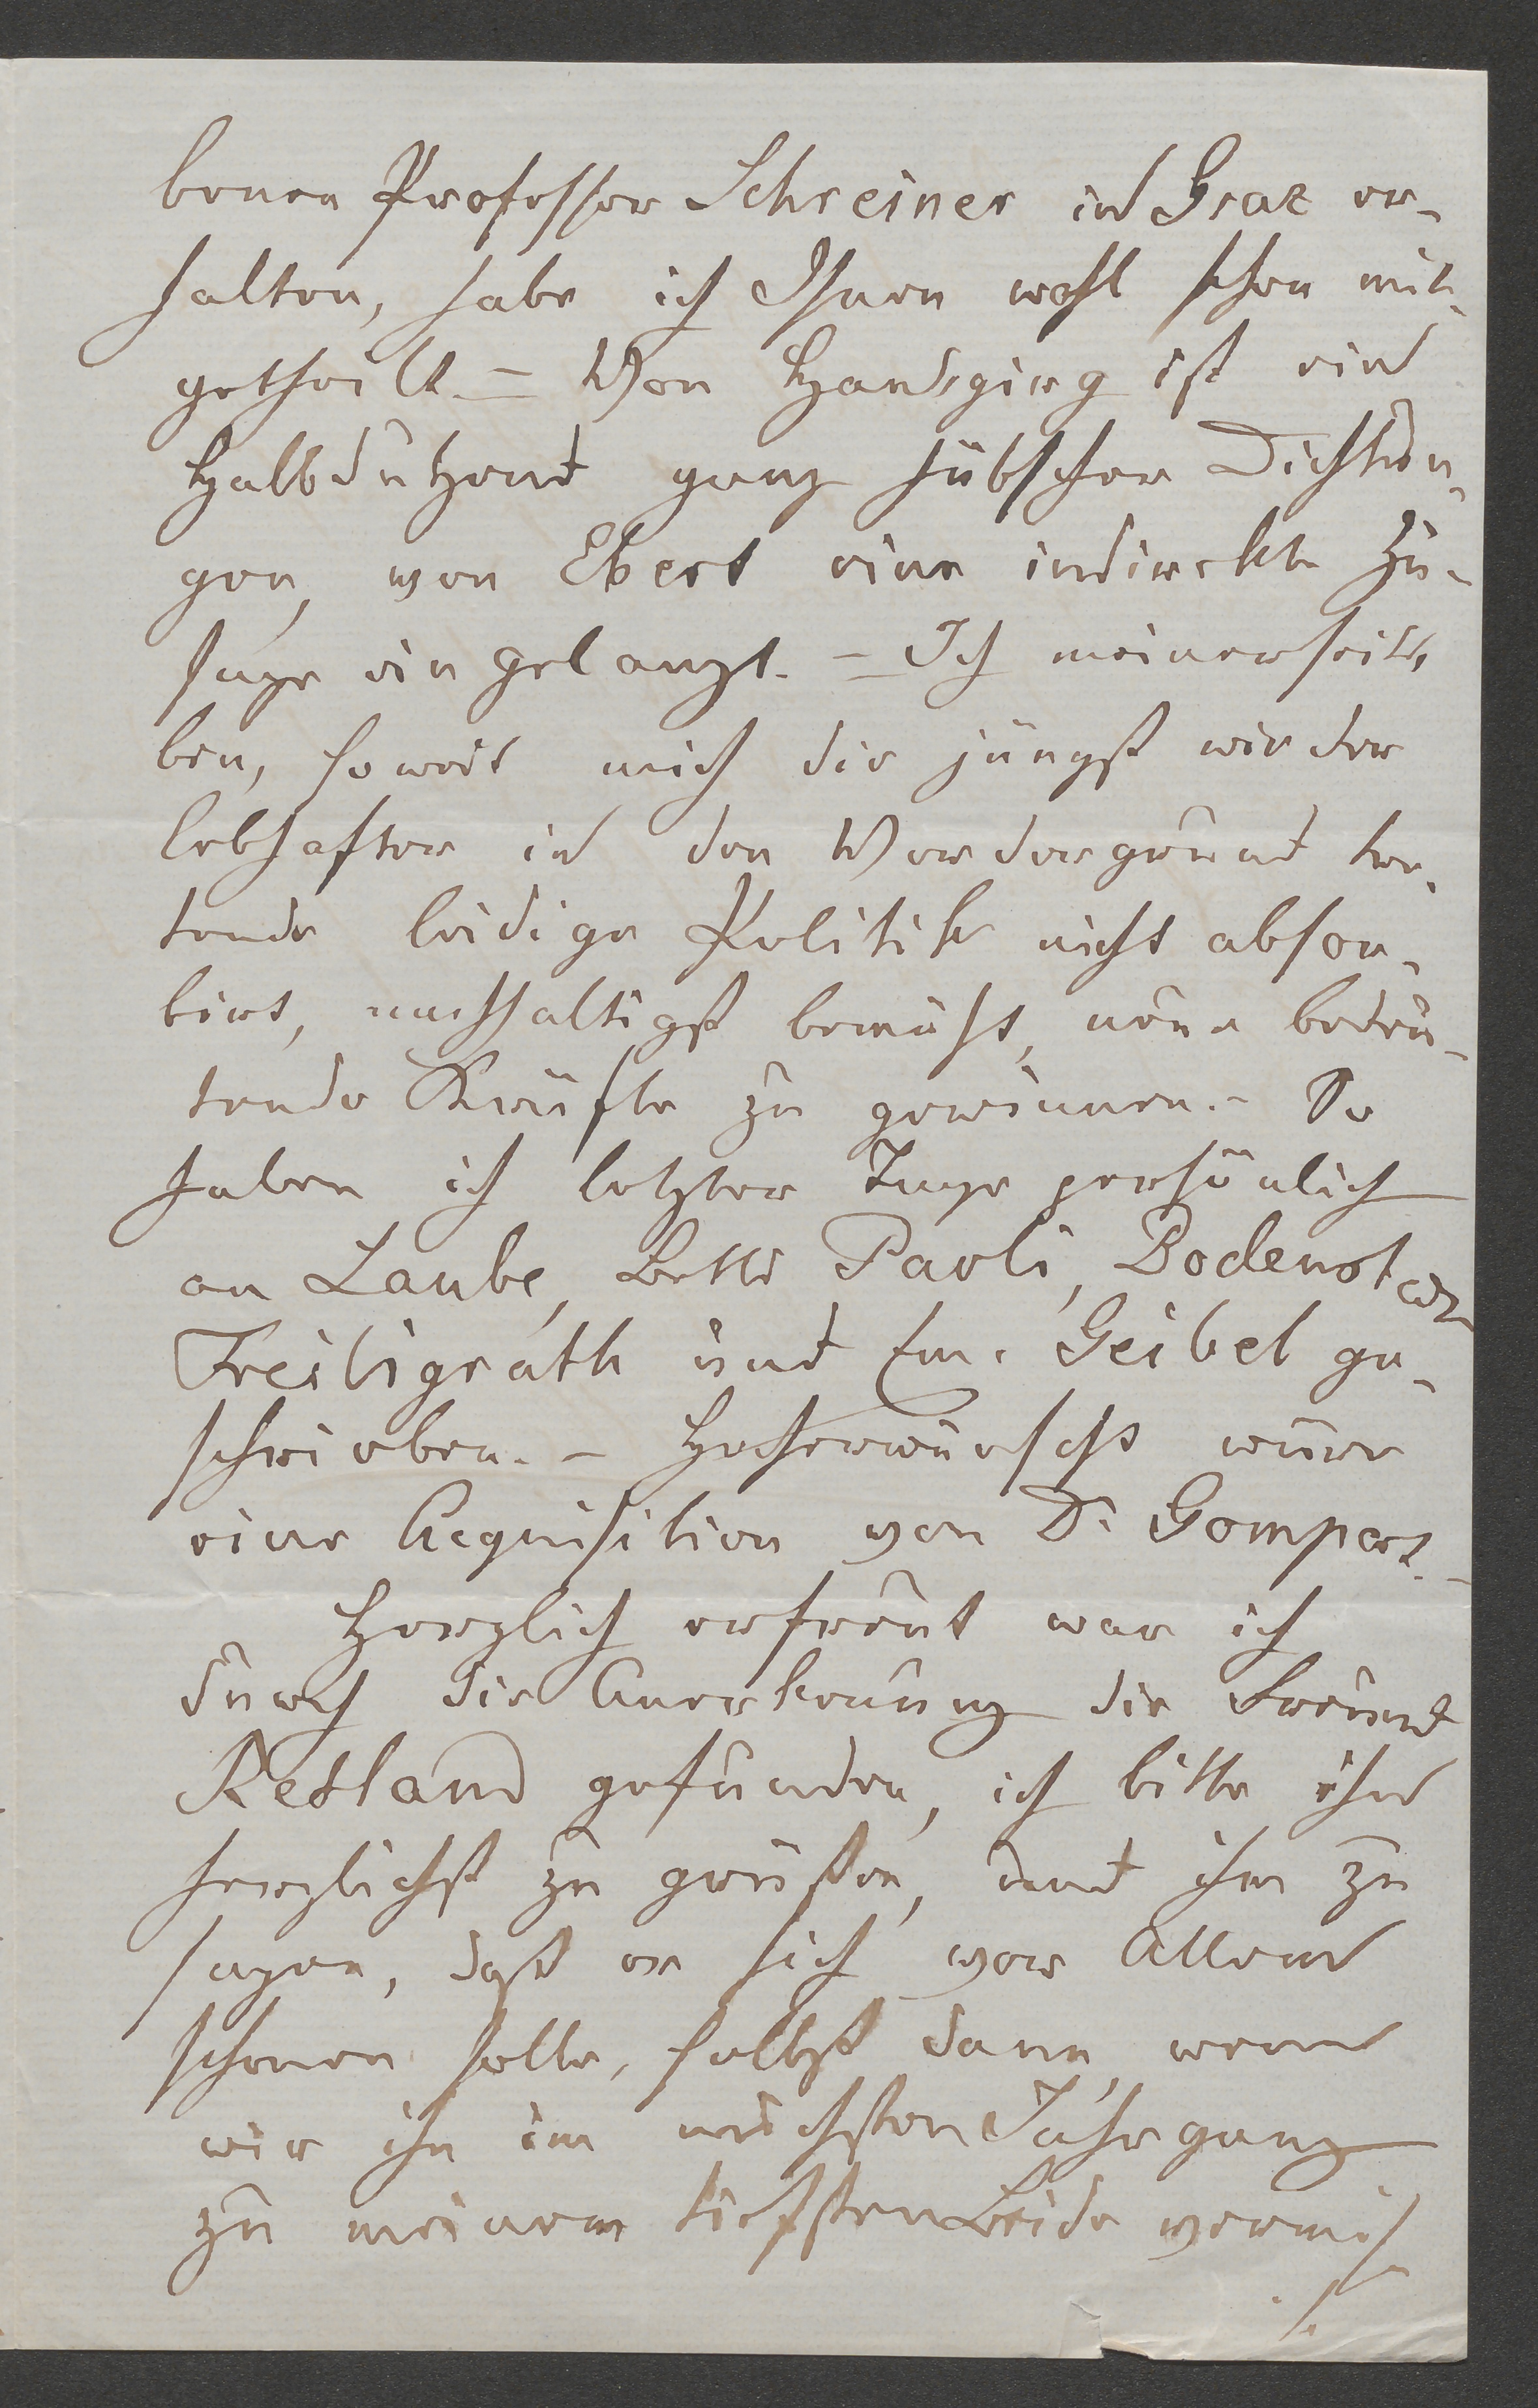 benen Professor Schreiner in Graz er-
halten, habe ich Ihnen wohl schon mit-
getheilt. – Von Hansgirg ist ein
Halbdutzend ganz hübscher Dichtun-
gen, von Ebert eine indirekte Zu-
sage eingelangt. – Ich meinerseits
bin, soweit mich die jüngst wieder
lebhafter in den Vordergrund tre-
tende leidige Politik nicht absor-
birt, nachhaltigst bemüht, neue bedeu-
tende Kräfte zu gewinnen. – So
haben ich letzter Tage persönlich
an Laube, Betti Paoli, Bodenstedt
Freiligrath und Em. Geibel ge-
schrieben. – Hocherwünscht wäre
eine Acquisition von Dr Gomperz. –
Herzlich erfreut war ich
durch die Anerkennung die Freund
Retland gefunden, ich bitte ihn
herzlichst zu grüßen, und ihm zu
sagen, daß er sich vor Allem
schonen solle, selbst dann, wenn
wir ihn im nächsten Jahrgang
zu meinem tiefsten Leide vermis
./.